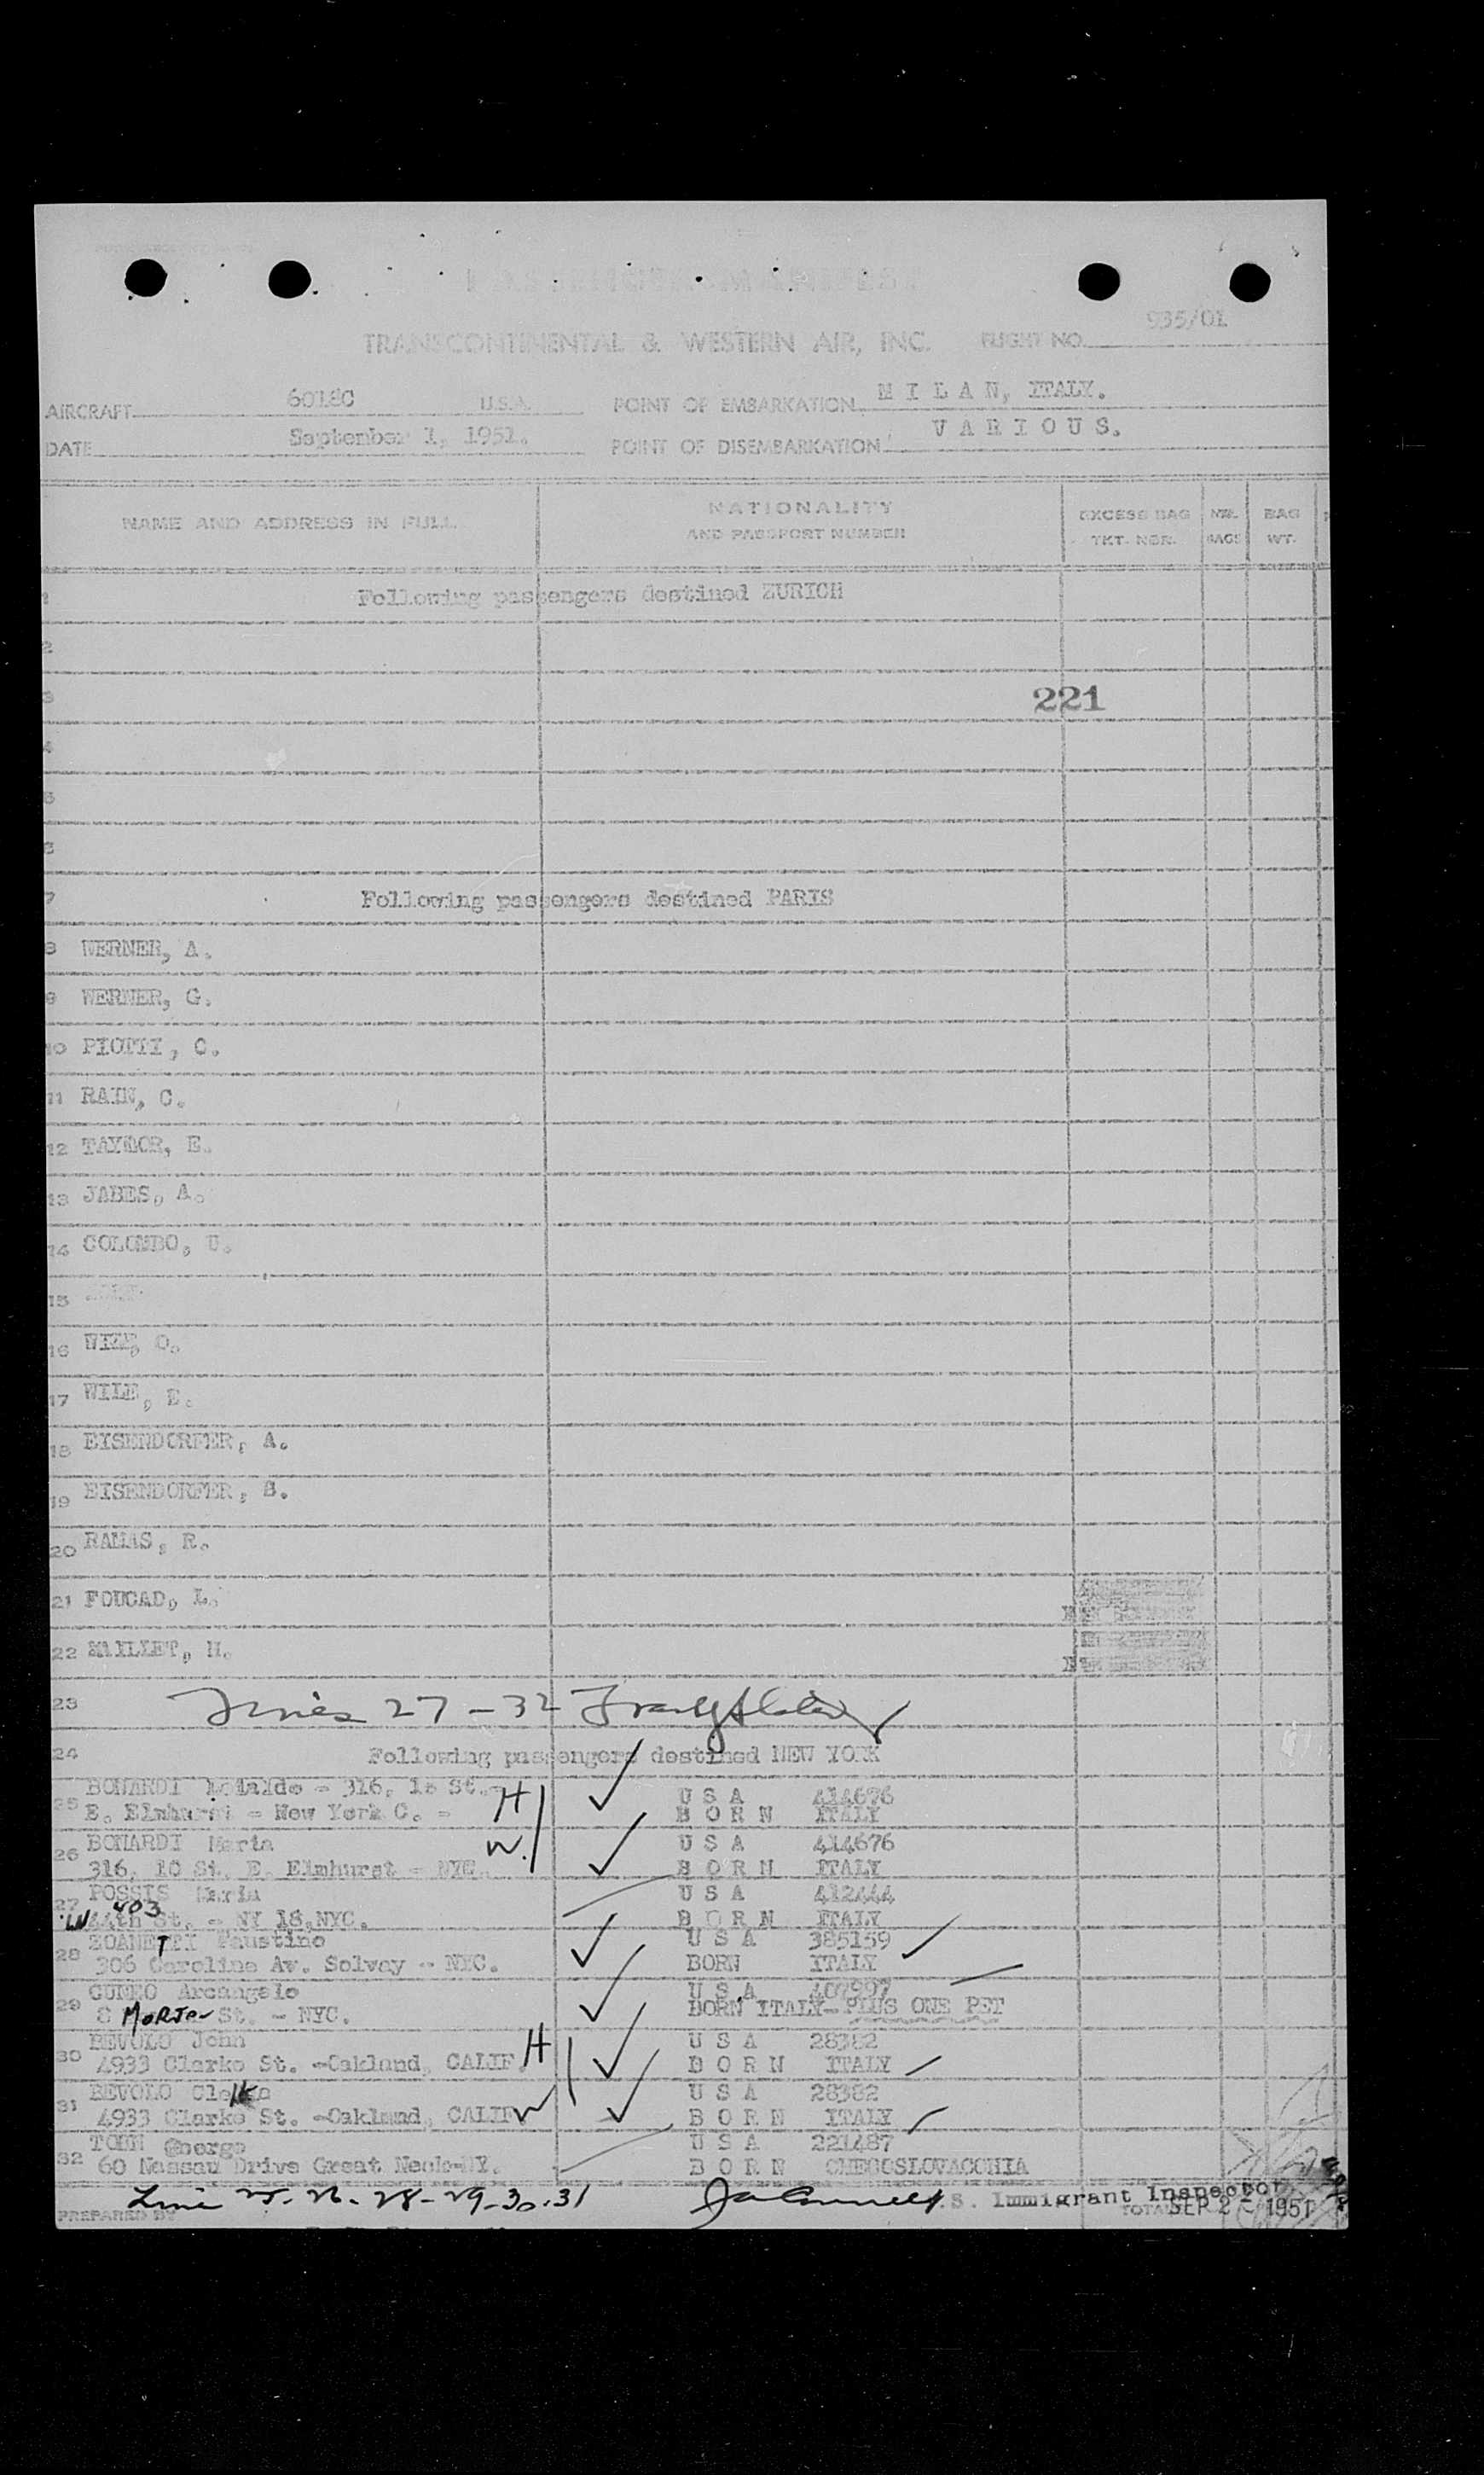 PASSENGER MANIFEST
TRANSCONTINENTAL & WESTERN AIR, INC. FLIGHT NO. 935/01
AIRCRAFT 6018C U.S.A. POINT OF EMBARKATION M I L A N, ITALY.
DATE September 1, 1951. POINT OF DISEMBARKATION V A R I O U S.
NAME AND ADDRESS IN FULL
NATIONALITY
AND PASSPORT NUMBER
EXCESS BAG
TKT. NBR.
NBR.
BAGS
BAG
WT.
1 Following passengers destined ZURICH
2
3 221
4
5
6
7 Following passengers destined PARIS
8 WERNER, A.
9 WERNER, G.
10 PIOTTI, C.
11 RAIN, C.
12 TAYLOR, E.
13 JABES, A.
14 COLOMBO, U.
15
16 O.
17 WILE, E.
18 EISENDORFER, A.
19 EISENDORFER, S.
20 RAMAS, R.
21 FOUCAD, L.
22 MAILLET, H.
23 Lines 27 - 32
24 Following passengers destined NEW YORK
BONARDI - 316, 10 St. - H U S A 414676
25 E. Elmhurst - New York C. - B O R N ITALY
26 BONARDI Maria W. U S A 414676
316, 10 St. E. Elmhurst - NYC. B O R N ITALY
27 POSSIS Maria U S A 412444
403 W 44th St. - NY 18, NYC. B O R N ITALY
28 ZOANETTI Faustino U S A 385159
306 Caroline Av. Solvay - NYC. BORN ITALY
29 CUNEO Arcangelo U S A 407997
8 Morton St. - NYC. BORN ITALY - PLUS ONE PET
30 BEVOLO John H U S A 28382
4933 Clarke St. -Oakland, CALIF. B O R N ITALY
31 BEVOLO W U S A 28382
4933 Clarke St. -Oakland, CALIF. B O R N ITALY
32 TOHN George U S A 221487
60 Nassau Drive Great Neck-NY. B O R N CHECOSLOVACCHIA
Line 25. 26. 28 - 29 - 30. 31 U.S. Immigrant Inspector
PREPARED BY TOTAL SEP 2 - 1951